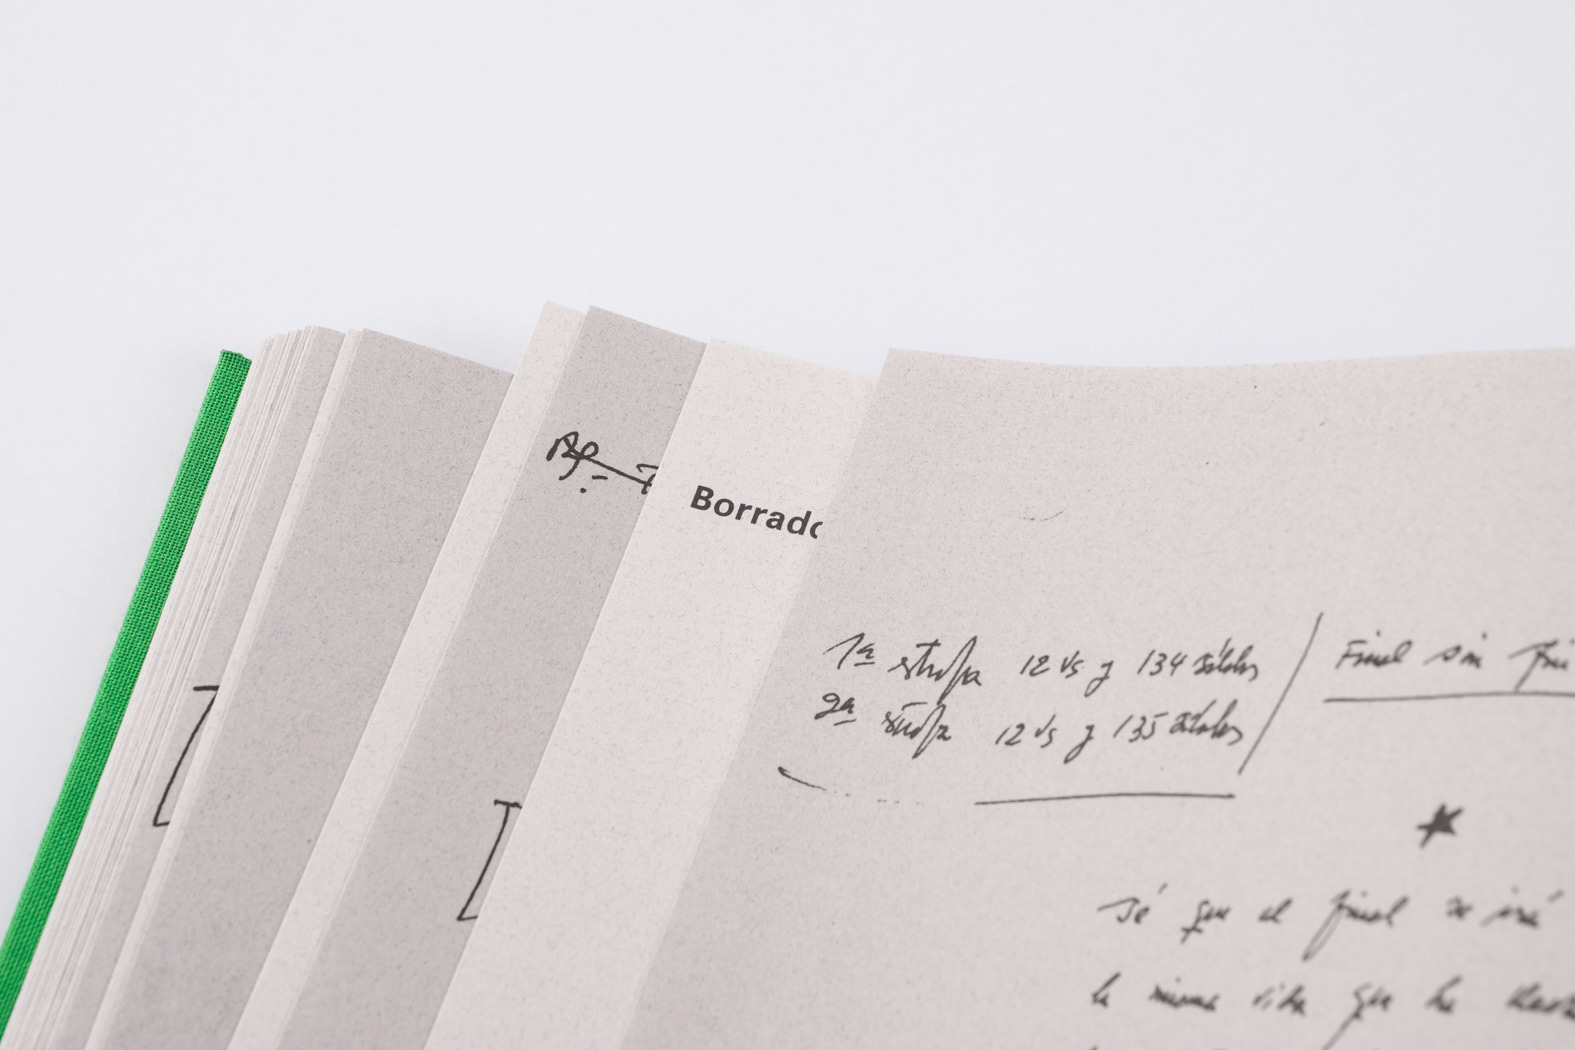 Borrado
1ª strofa 12 vs y 134 sílabas
2ª strofa 12 vs y 135 sílabas
Final sin fin
Sé que al final se irá
la misma vida que ha